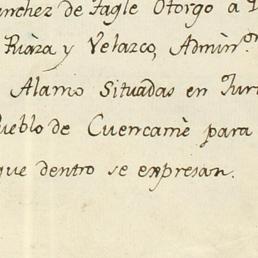 nchez de Tagle Otorgó a
Ruàza y Velazco, Admin.
Alamo Situadas en Jur
ueblo de Cuencamè para
que dentro se expresan.